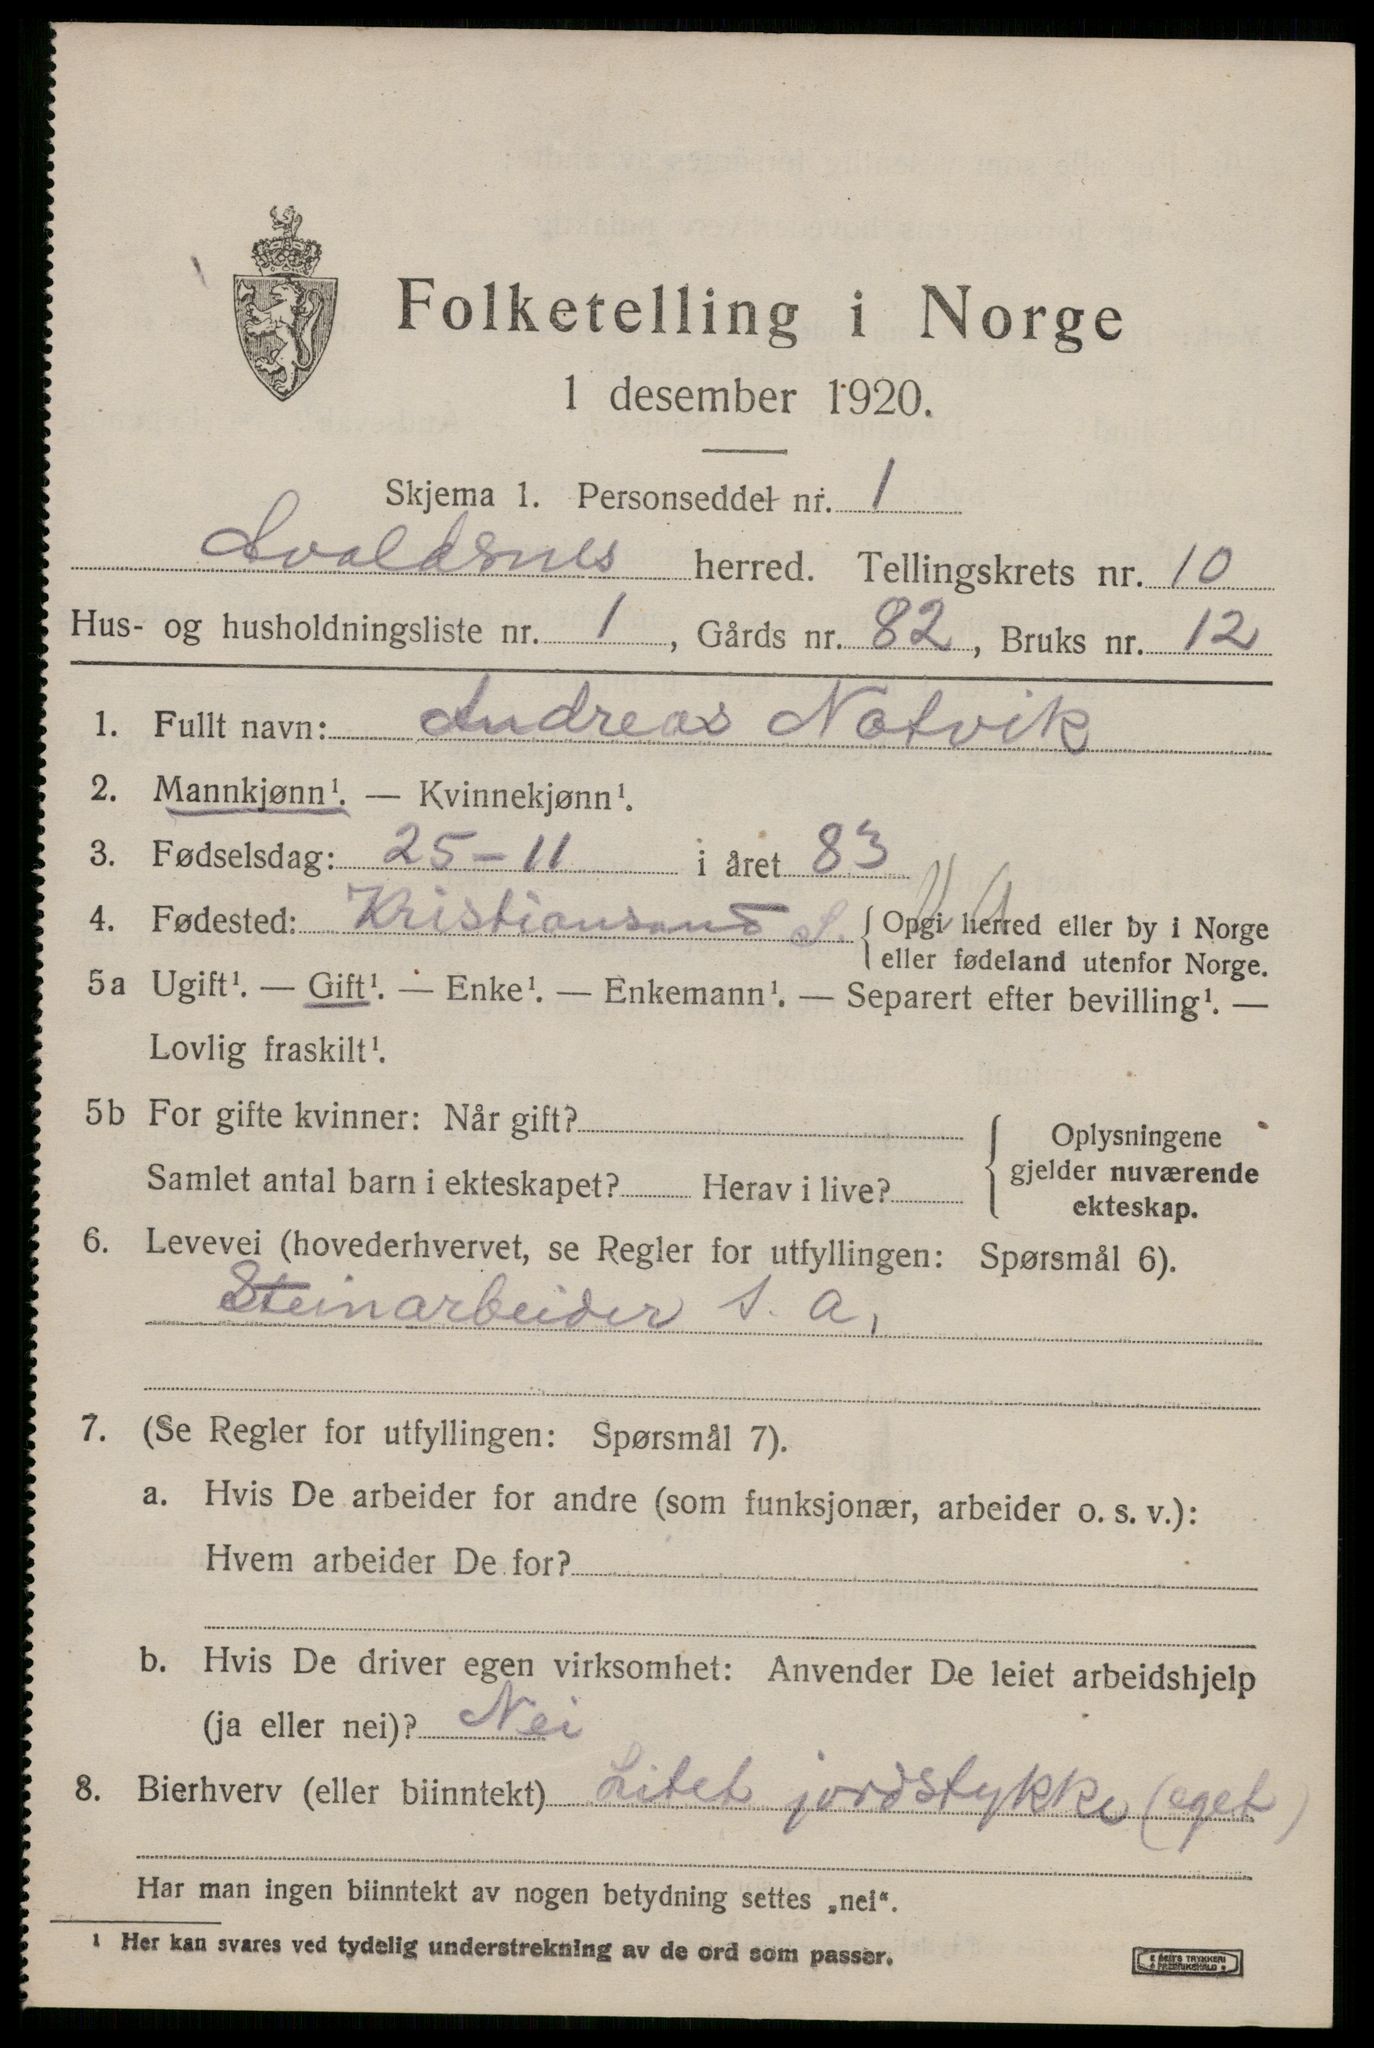 Folketelling i Norge
1 desember 1920.
Skjema 1. Personseddel nr. 1
Avaldsnes herred. Tellingskrets nr. 10
Hus- og husholdningsliste nr. 1, Gårds nr. 82, Bruks nr. 12
1. Fullt navn: Andreas Notvik
2. Mannkjønn¹. — Kvinnekjønn¹.
3. Fødselsdag: 25-11 i året 83
4. Fødested: Kristiansand S. { Opgi herred eller by i Norge
eller fødeland utenfor Norge.
5a Ugift¹. — Gift¹. — Enke¹. — Enkemann¹. — Separert efter bevilling¹. —
Lovlig fraskilt¹.
5b For gifte kvinner: Når gift?
Samlet antal barn i ekteskapet? Herav i live?
Oplysningene
gjelder nuværende
ekteskap.
6. Levevei (hovederhvervet, se Regler for utfyllingen: Spørsmål 6).
Steinarbeider s. a,
7. (Se Regler for utfyllingen: Spørsmål 7).
a. Hvis De arbeider for andre (som funksjonær, arbeider o. s. v.):
Hvem arbeider De for?
b. Hvis De driver egen virksomhet: Anvender De leiet arbeidshjelp
(ja eller nei)? Nei
8. Bierhverv (eller biinntekt) Litet jordstykke (eget)
Har man ingen biinntekt av nogen betydning settes „nei“.
¹ Her kan svares ved tydelig understrekning av de ord som passer.